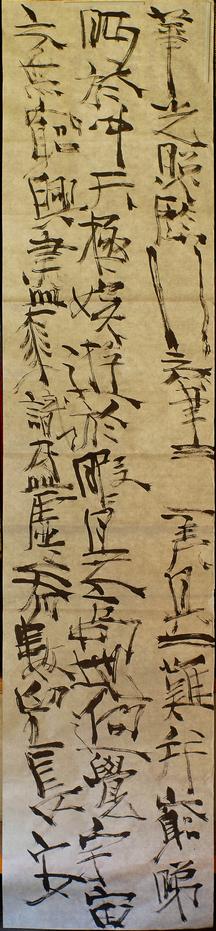 華光照臨川之筆四美具二難并窮睇
眄於中天極娛游於暇日天高地迥覺宇宙
之無窮興盡悲來識盈虛之有數望長安